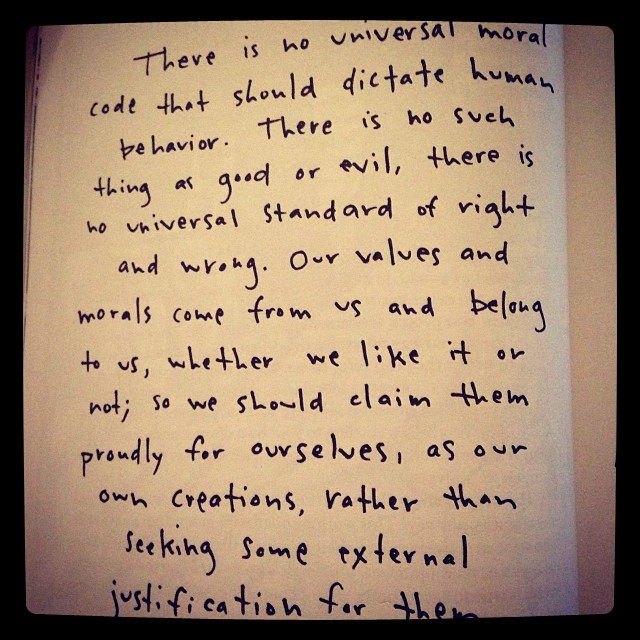 There is no universal moral
code that should dictate human
behavior. There is no such
thing as good or evil, there is
no universal standard of right
and wrong. Our values and
morals come from us and belong
to us, whether we like it or
not; so we should claim them
proudly for ourselves, as our
own creations, rather than
seeking some external
justification for them